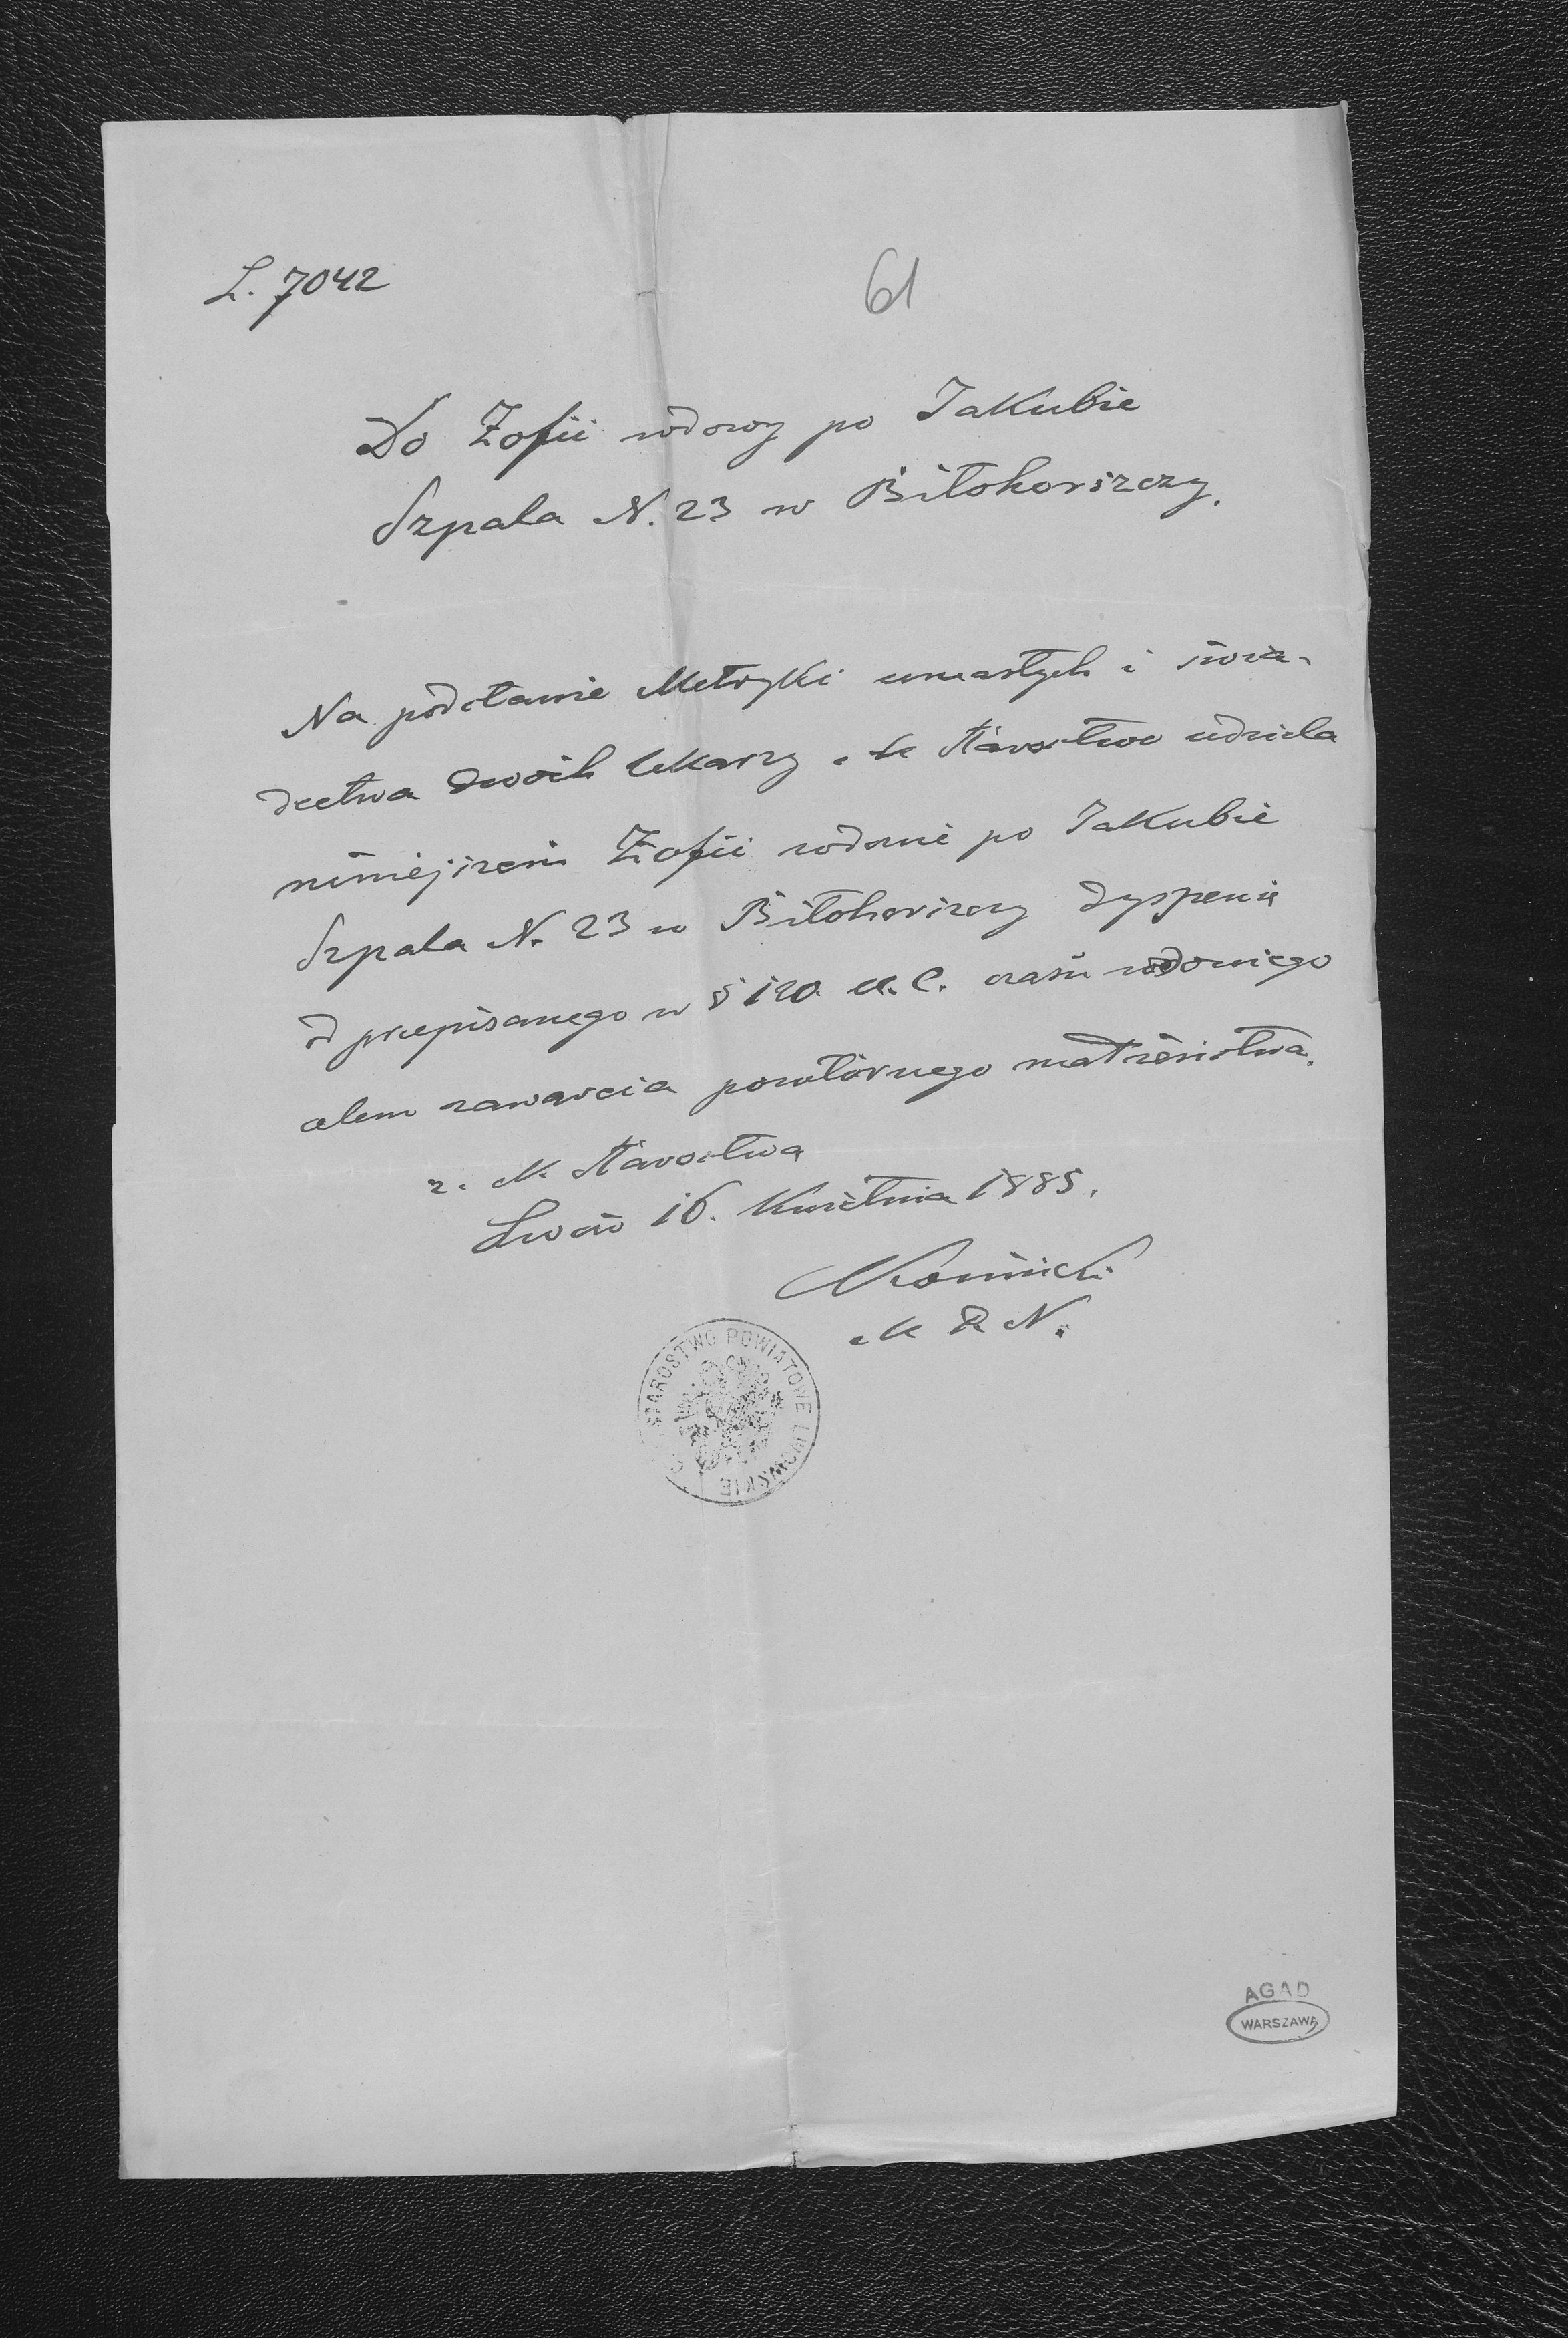 L. 7042
61
Do Zofii wdowy po Jakubie
Szpala N. 23 w Biłohorszczy.
Na podstawie Metryki umarłych i świa-
dectwa dwóch lekarzy c. k. Starostwo udziela
niniejszem Zofii wdowie po Jakubie
Szpala N. 23 w Biłohorszczy dyspensę
od przepisanego w § 120. u. c. czasu wdowiego
celem zawarcia powtórnego małżeństwa.
Starostwa
Lwów 16. Kwietnia 1885.
STAROSTWO POWIATOWE LWOWSKIE
AGAD
WARSZAWA